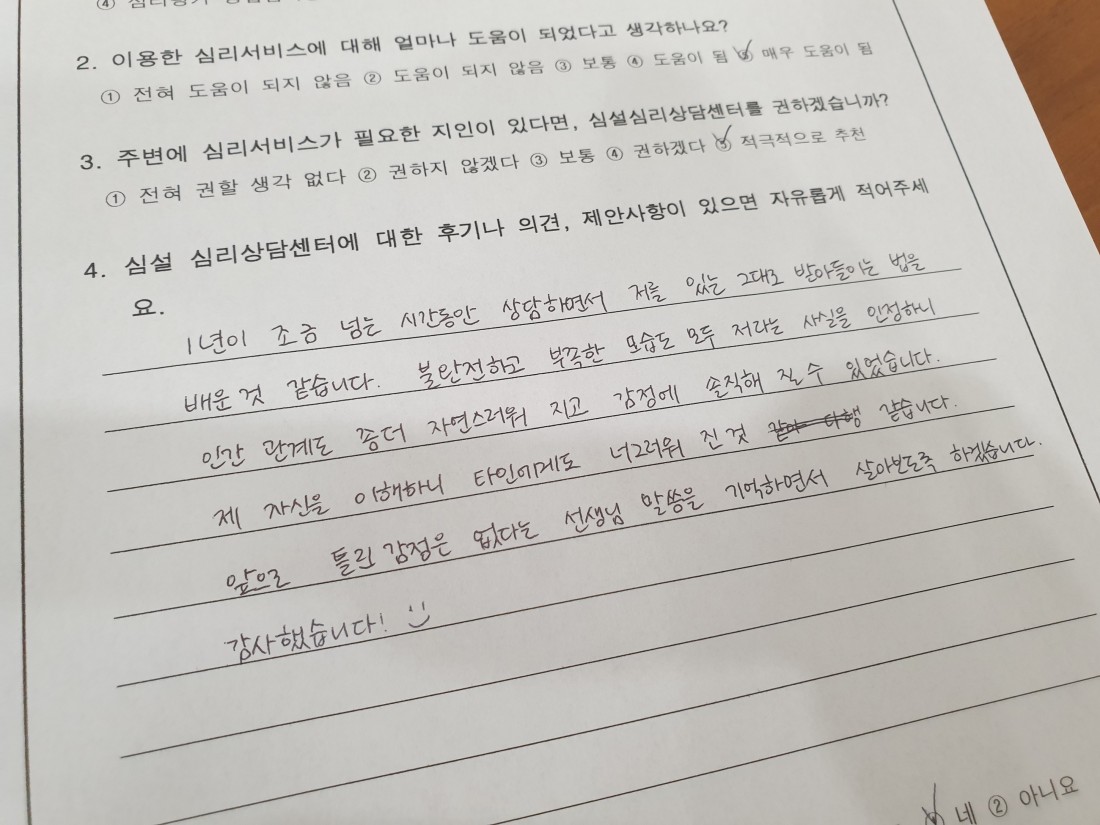 ④ 심리평가
2. 이용한 심리서비스에 대해 얼마나 도움이 되었다고 생각하나요?
① 전혀 도움이 되지 않음 ② 도움이 되지 않음 ③ 보통 ④ 도움이 됨 ⑤ 매우 도움이 됨
3. 주변에 심리서비스가 필요한 지인이 있다면, 심설심리상담센터를 권하겠습니까?
① 전혀 권할 생각 없다 ② 권하지 않겠다 ③ 보통 ④ 권하겠다 ⑤ 적극적으로 추천
4. 심설 심리상담센터에 대한 후기나 의견, 제안사항이 있으면 자유롭게 적어주세
요.
1년이 조금 넘는 시간동안 상담하면서 저를 있는 그대로 받아들이는 법을
배운 것 같습니다. 불완전하고 부족한 모습도 모두 저라는 사실을 인정하니
인간 관계도 좀 더 자연스러워 지고 감정에 솔직해 질 수 있었습니다.
제 자신을 이해하니 타인에게도 너그러워 진 것 같습니다.
앞으로 틀린 감정은 없다는 선생님 말씀을 기억하면서 살아보도록 하겠습니다.
감사했습니다!
네 ② 아니요